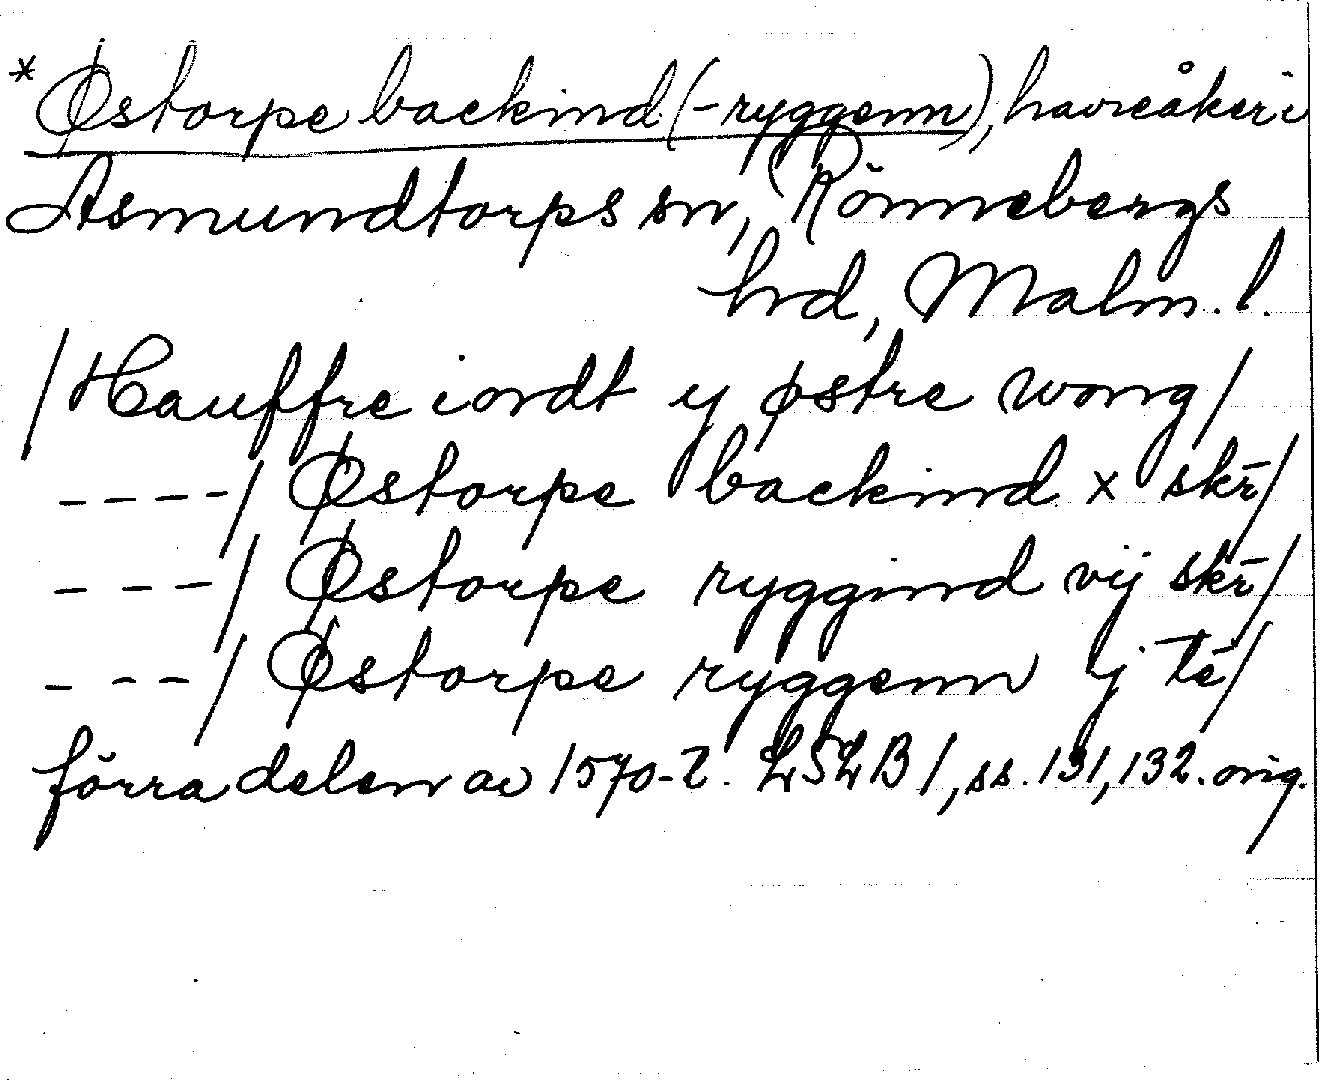 *Østorpe backind (-ryggenn), havreåker i
Asmundtorps sn, Rönnebergs
hd, Malm. l.
/Hauffre iordt y østre wong/
----/ Østorpe backind x skr̄/
---/ Østorpe ryggind vij skr̄/
---/ Østorpe ryggenn ij te/
förra delen av 1570-t. LSLB 1, ss. 131, 132. orig.